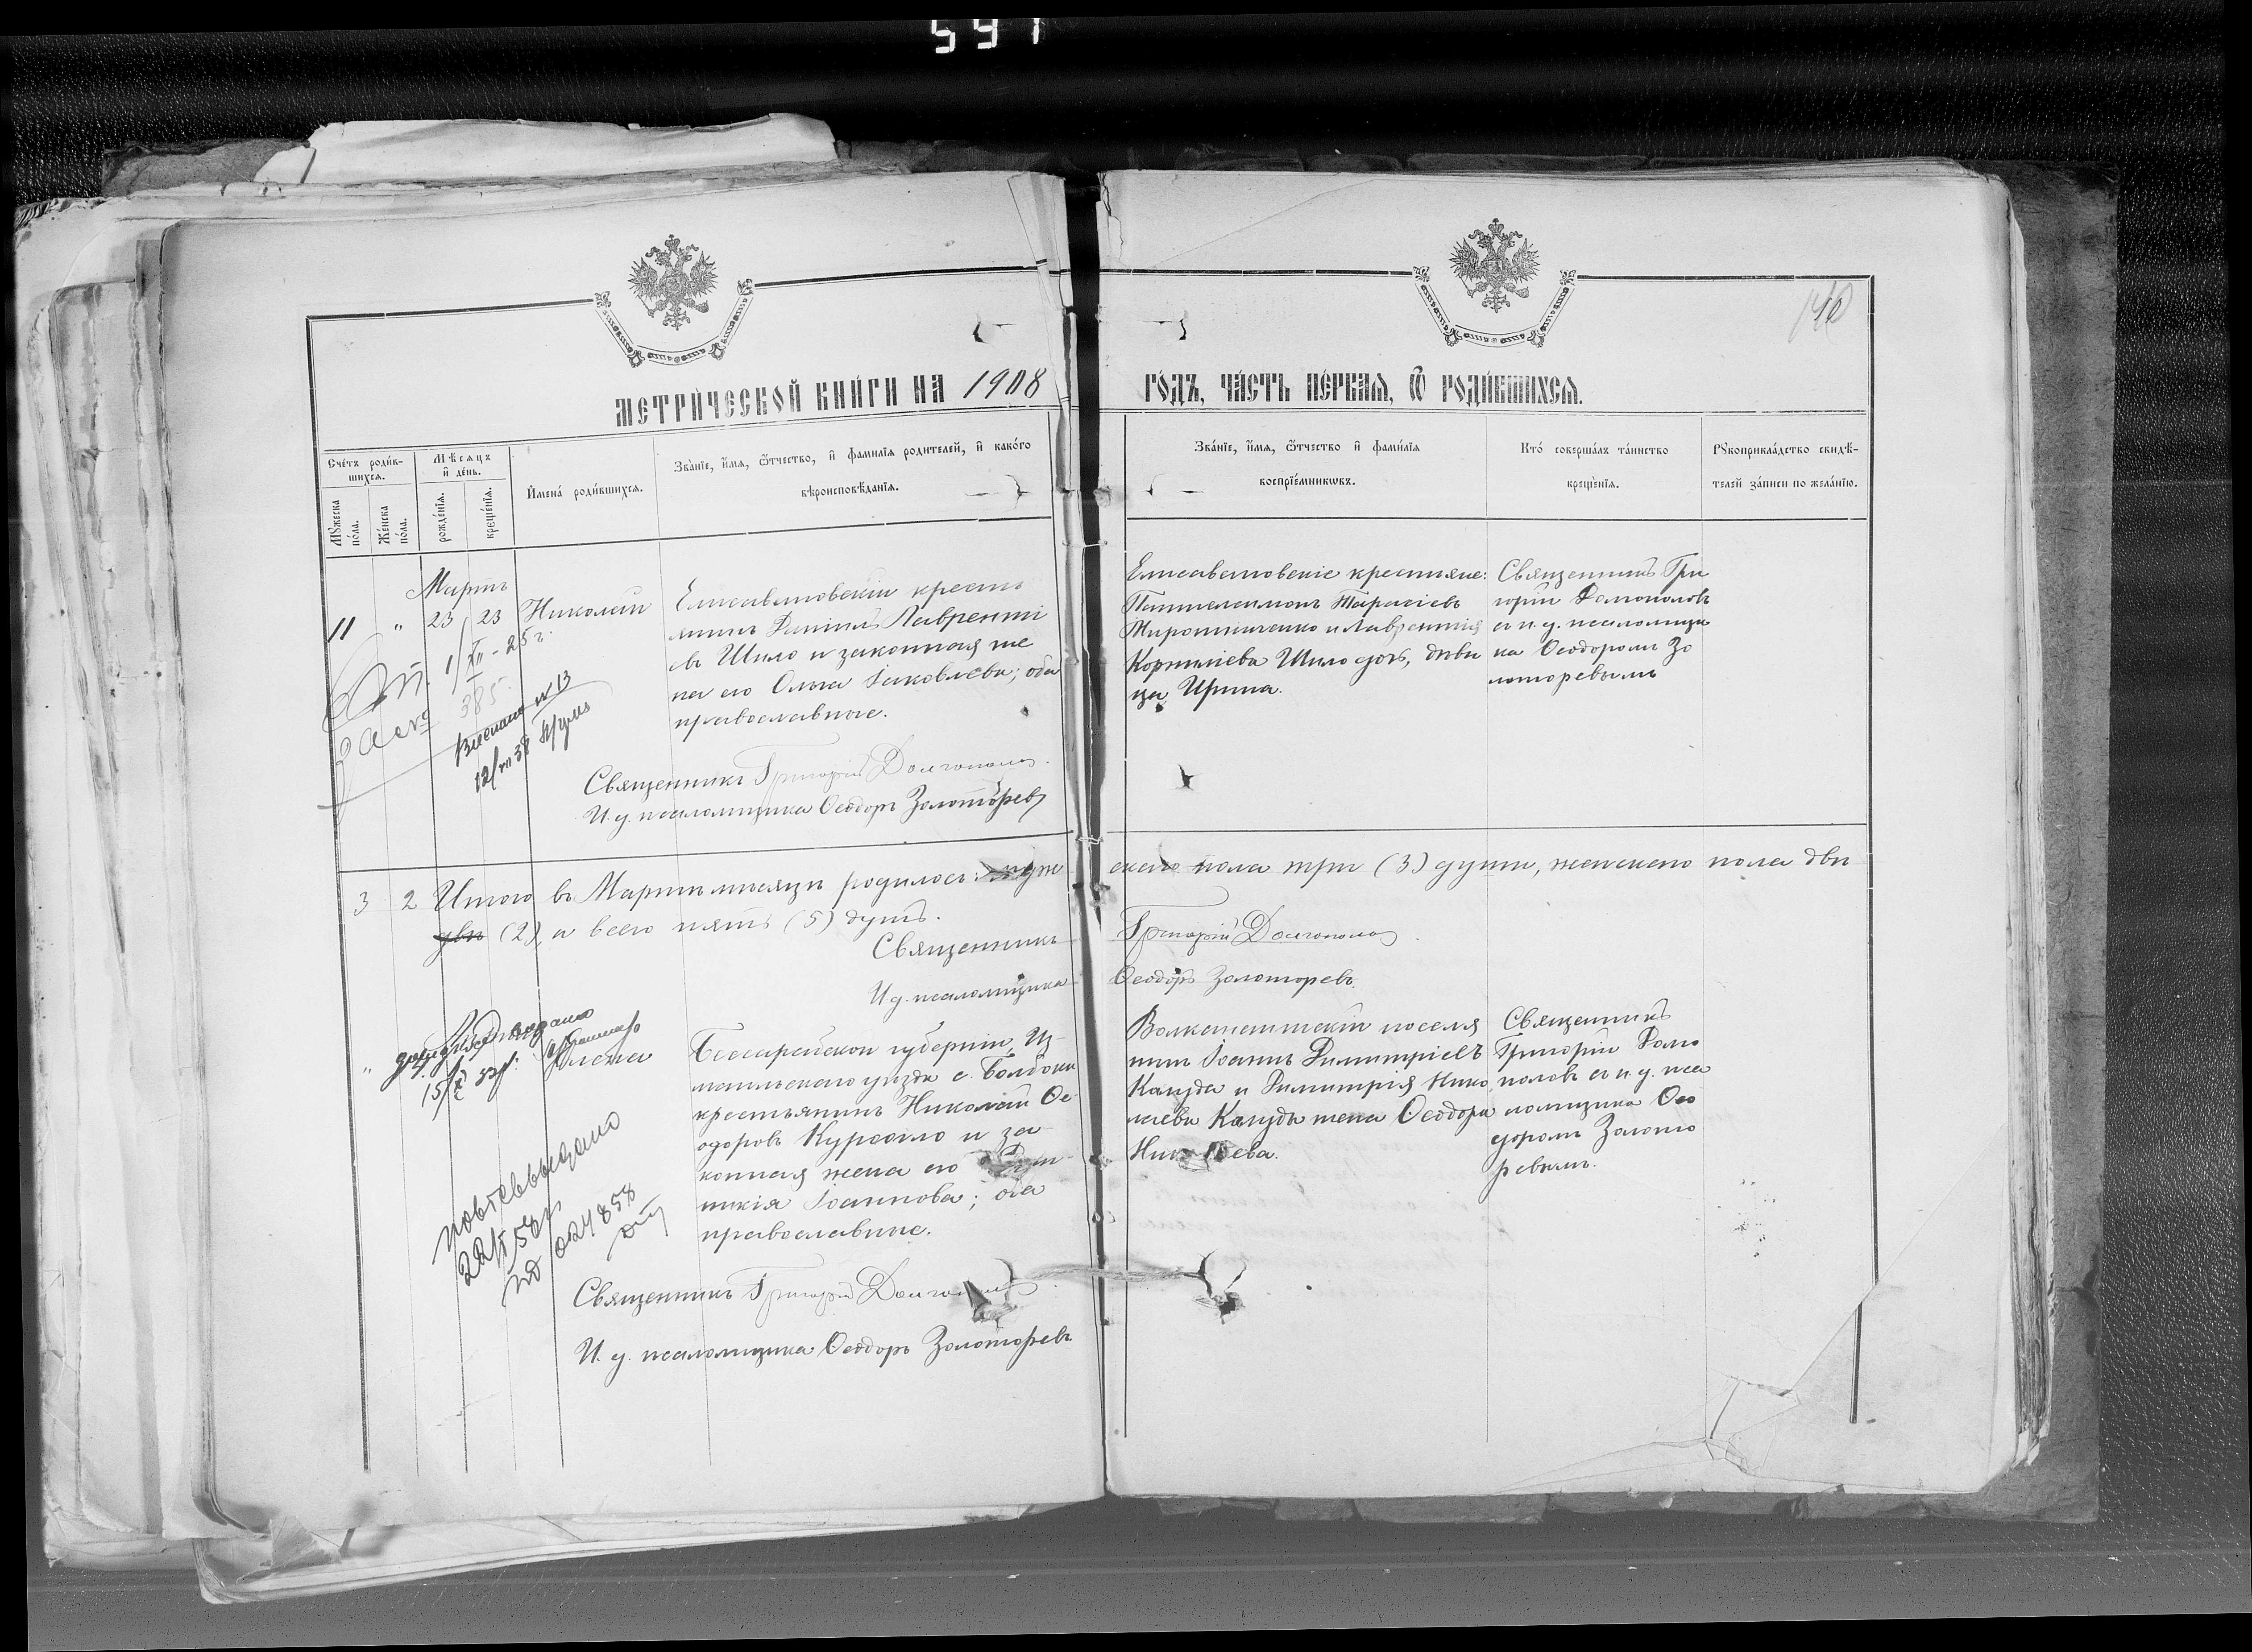 591
140
МЕТРИЧЕСКОЙ КНИГИ НА 1908
ГОДЪ, ЧАСТЬ ПЕРВАЯ, Ѿ РОДИВШИХСЯ.
Счетъ родив-
шихся.
Мужеска
пола.
Женска
пола.
Мѣсяцъ
и день.
рожденія.
крещенія.
Имена родившихся.
Званіе, имя, ѿтчество, и фамилія родителей, и какого
вѣроисповѣданія.
Званіе, имя, ѿтчество и фамилія
воспріемникѡвъ.
Кто совершалъ таинство
крещенія.
Рукоприкладство свидѣ-
телей записи по желанію.
Мартъ
11 " 23 23 Николай
Елисаветовскій кресть
янинъ Даніилъ Лавренті
евъ Шило и законная же
на его Ольга Іаковлева; оба
православные.
1/XII-25г.
385
Выслано №13
12/VII 38
Священникъ Григорій Долгополов
И. д. псаломщика Ѳеодоръ Золоторевъ
Елисаветовскіе крестьяне:
Пантелеимонъ Тарасіевъ
Мирошниченко и Лаврентія
Корниліева Шило дочь, дѣви
ца Ирина.
Священникъ Гри
горій Долгополовъ
съ и. д. псаломщи
ка Ѳеодоромъ Зо
лоторевымъ
3 2 Итого въ Мартѣ мѣсяцѣ родилось: муже
скаго пола три (3) души, женскаго пола двѣ
двѣ (2), а всего пять (5) душъ.
Священникъ Григорій Долгополов
И д. псаломщика Ѳеодоръ Золоторевъ.
" Елена
Бессарабской губерніи, Из-
маильскаго уѣзда с. Болбоки
крестьянинъ Николай Ѳе-
одоровъ Куросло и за-
конная жена его
никія Іоаннова; оба
православные.
повт выдано
22/I 58г
024858
Священникъ Григорій Долгополов
И. д. псаломщика Ѳеодоръ Золоторевъ
Волканештскій поселя
нинъ Іоаннъ Димитріевъ
Калуда и Димитрія Нико
лаева Калуды жена Ѳеодора
Николаева.
Священникъ
Григорій Долго
половъ съ и д. пса
ломщика Ѳео
доромъ Золото
ревымъ.